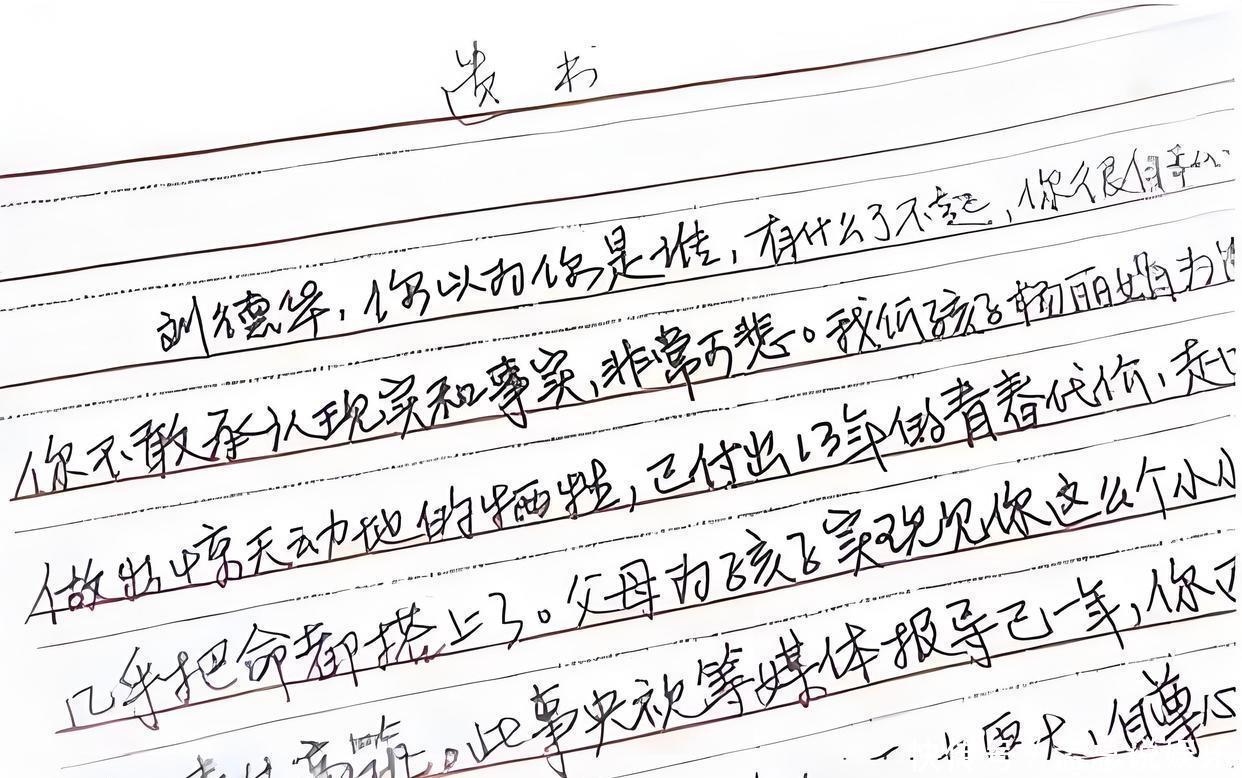 遗书
刘德华，你以为你是谁，有什么了不起，你很自私
你不敢承认现实和事实，非常可悲。我们孩子杨丽娟为
做出惊天动地的牺牲，已付出13年的青春代价，
几乎把命都搭上了。父母为孩子实现见你这么个小小
。此事央视等媒体报导已一年，你
自尊心